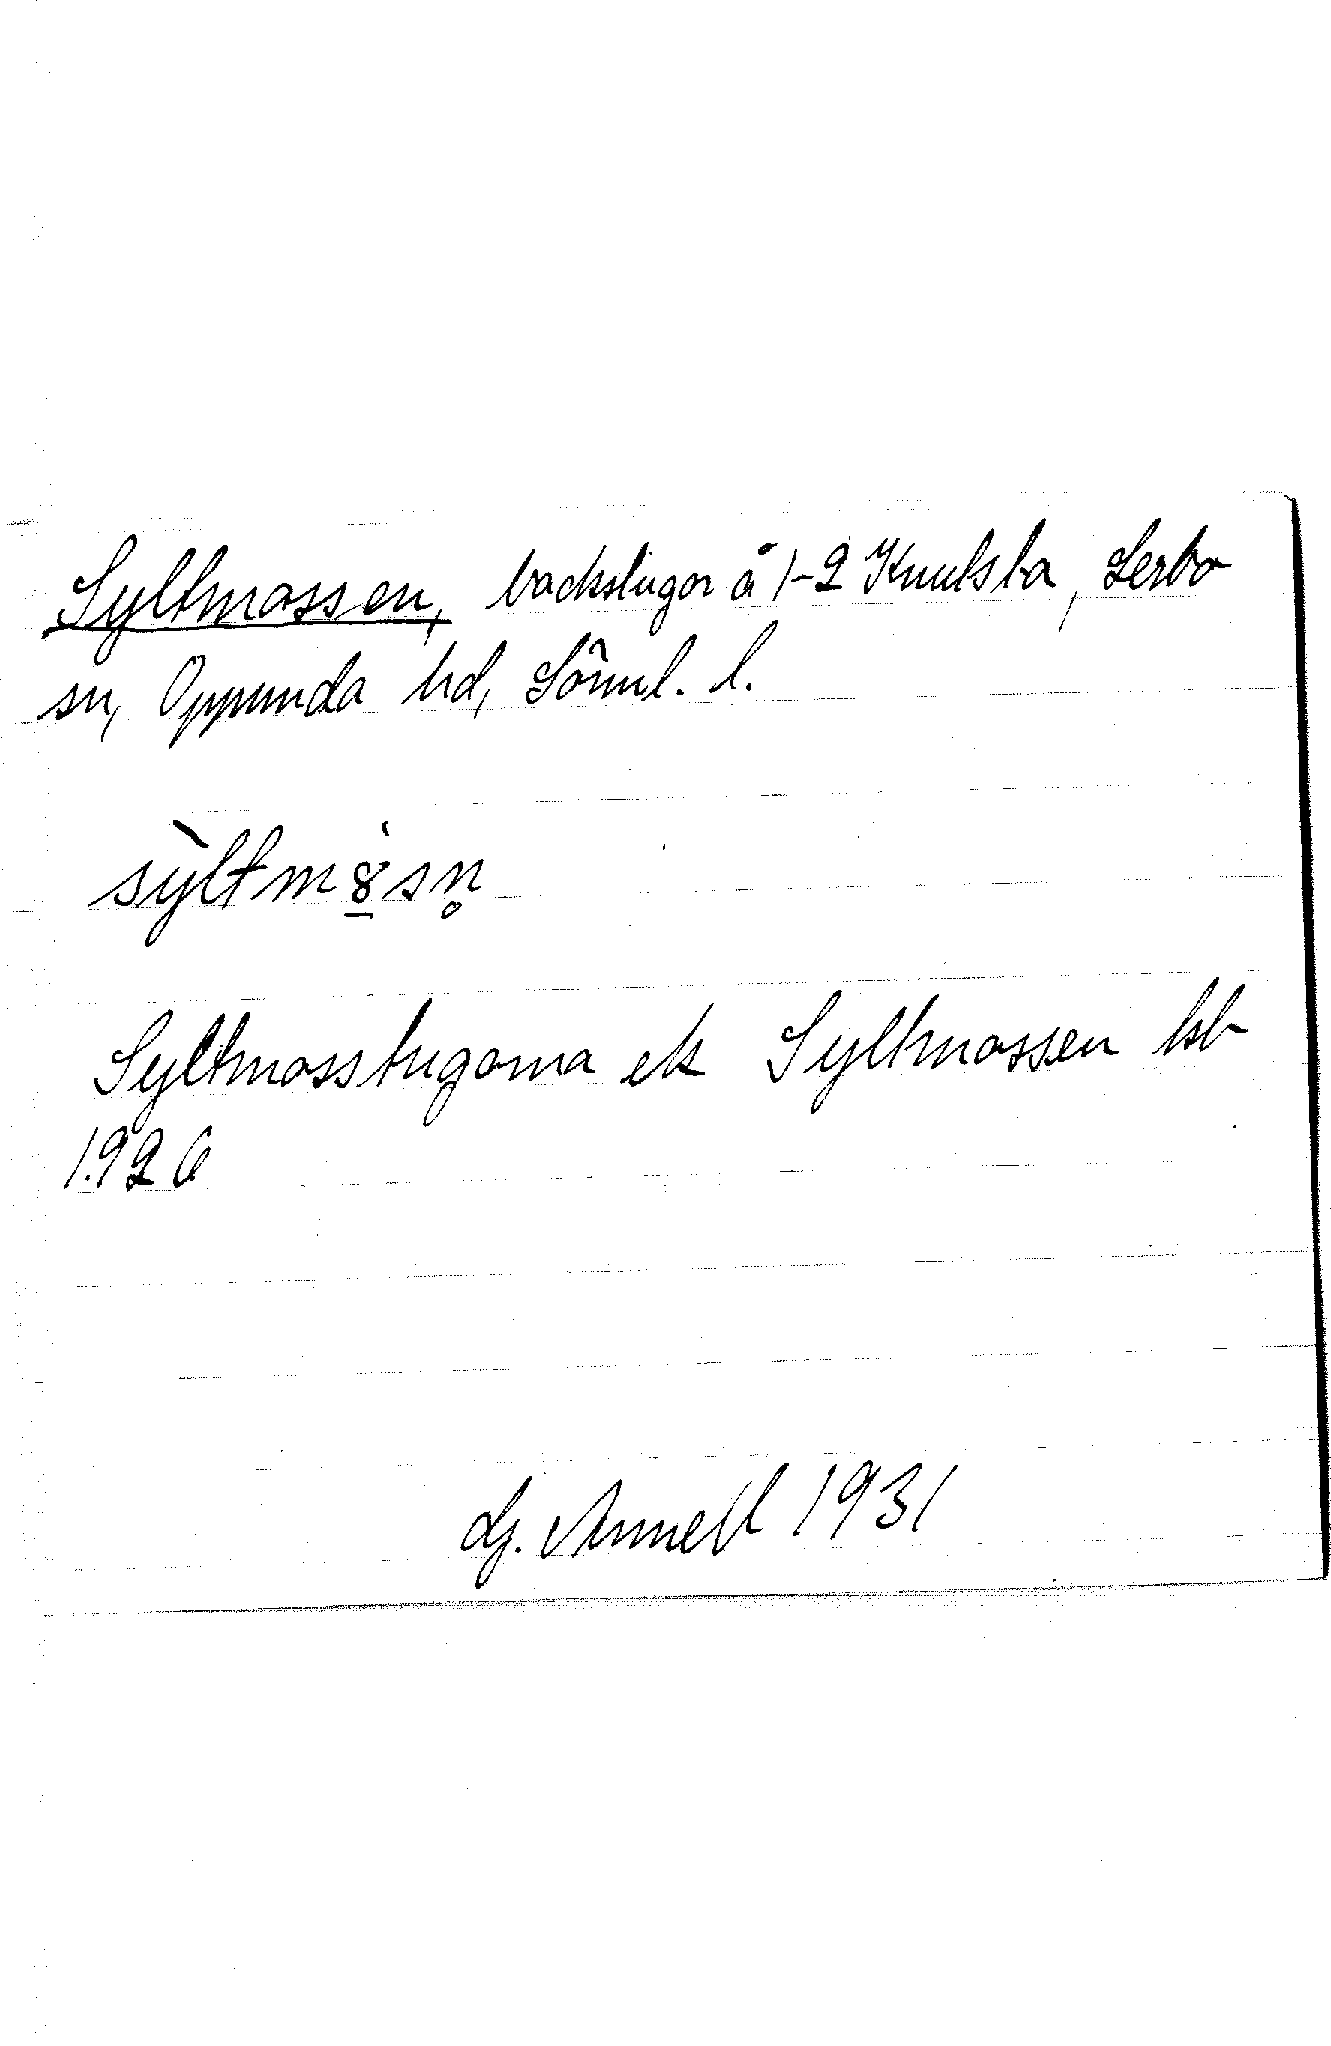 Syltmossen, backstugor å 1-2 Knutsta, Lerbo
sn, Oppunda hd, Söml. l.
sỳltm8̠̀sn̥
Syltmosstugorna ek Syltmossen hsb
1926
Hj. Annell 1931